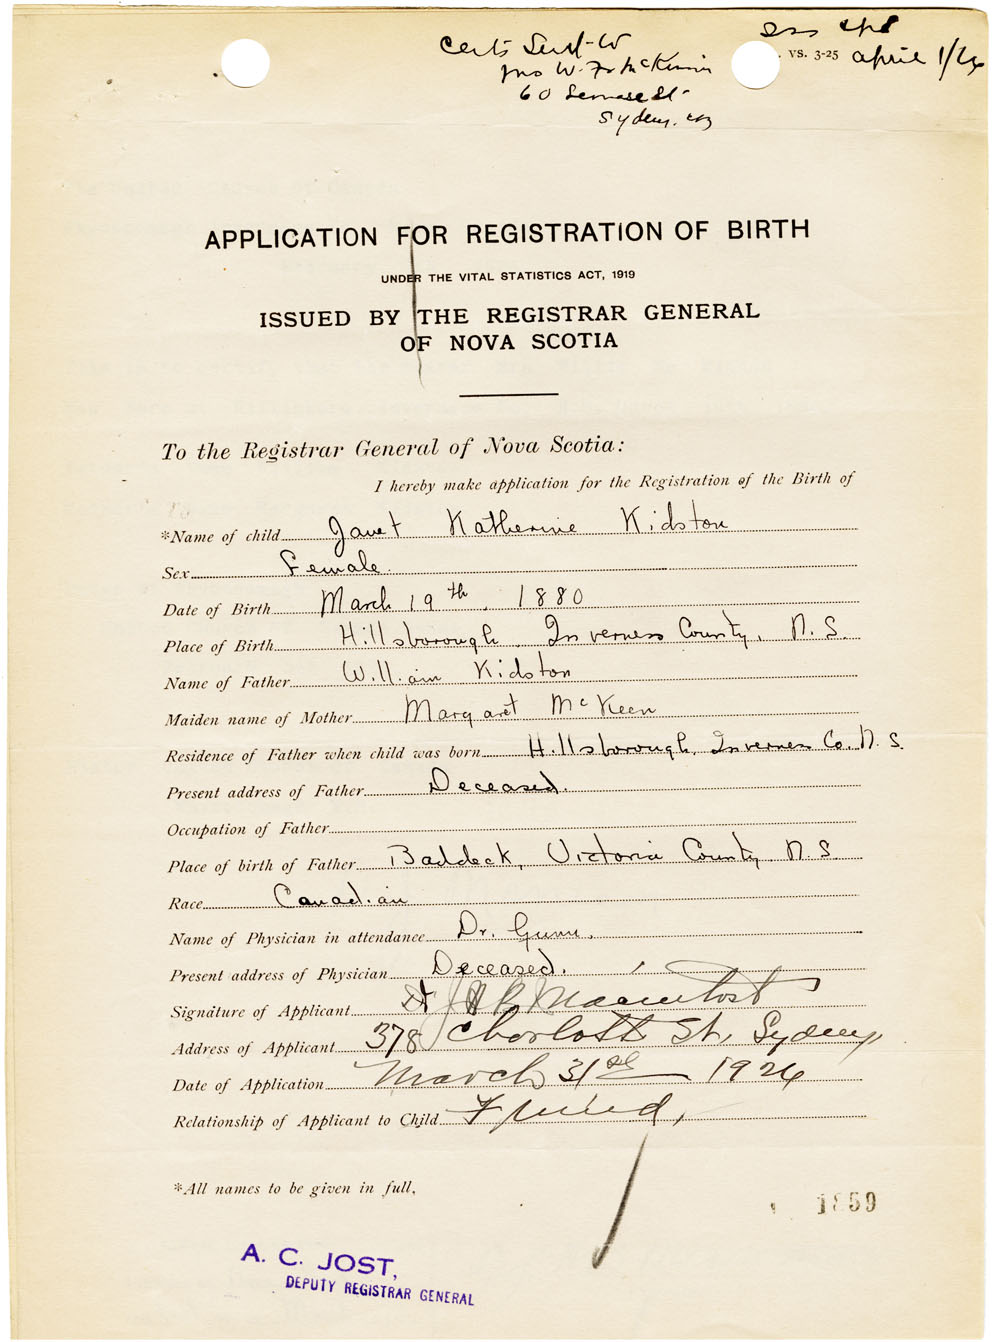 Certs Sent - W
VS. 3-25 april 1/26
Jno W. McKinnon
60
Sydney. CB
APPLICATION FOR REGISTRATION OF BIRTH
UNDER THE VITAL STATISTICS ACT, 1919
ISSUED BY THE REGISTRAR GENERAL
OF NOVA SCOTIA
To the Registrar General of Nova Scotia:
I hereby make application for the Registration of the Birth of
*Name of child Janet Katherine Kidston
Sex Female.
Date of Birth March 19th, 1880
Place of Birth Hillsborough, Inverness County, N.S.
Name of Father William Kidston
Maiden name of Mother Margaret McKeen
Residence of Father when child was born Hillsborough, Inverness Co. N.S.
Present address of Father Deceased.
Occupation of Father
Place of birth of Father Baddeck, Victoria County N.S.
Race Canadian
Name of Physician in attendance Dr. Gunn.
Present address of Physician Deceased.
Signature of Applicant Macintosh
Address of Applicant 378 Charlotte St., Sydney,
Date of Application March 31st 1926
Relationship of Applicant to Child Friend,
*All names to be given in full.
1859
A. C. JOST,
DEPUTY REGISTRAR GENERAL